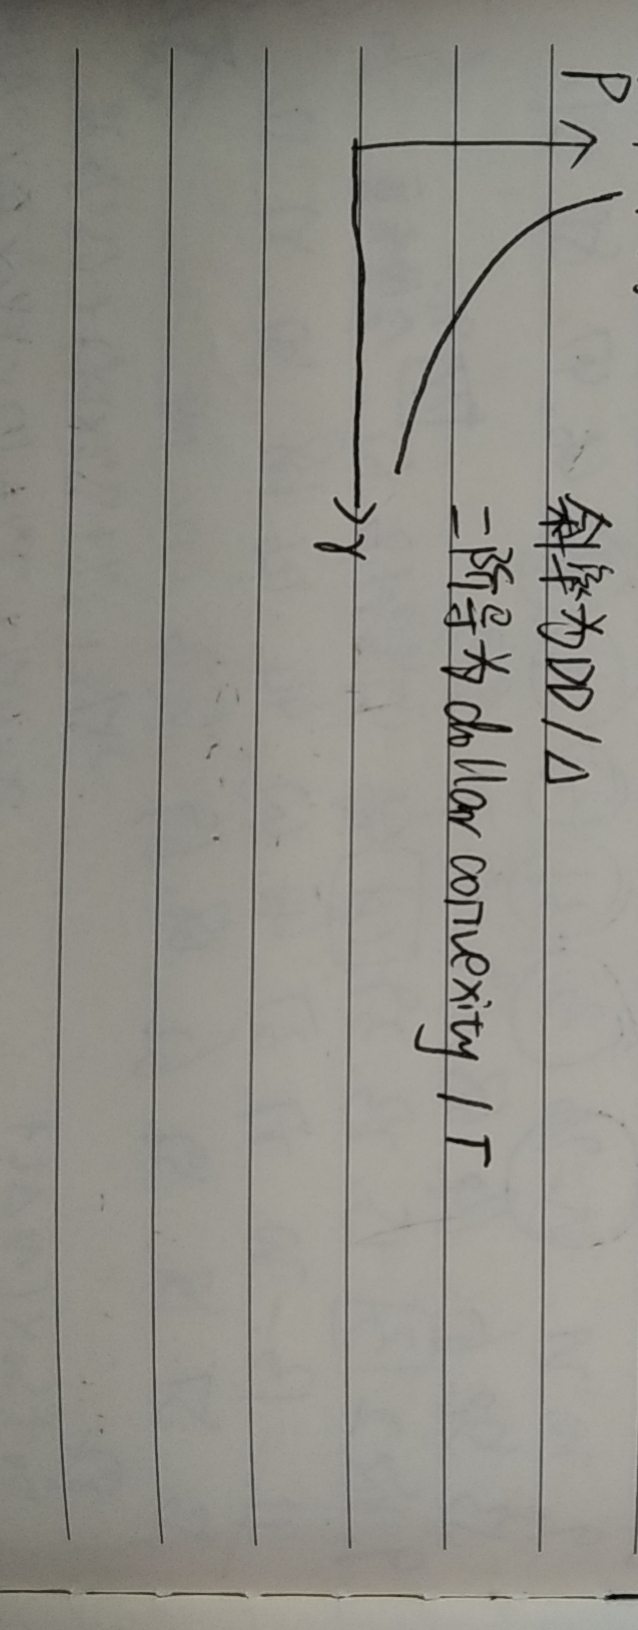 P
斜率为DD/Δ
二阶导为dollar convexity/Γ
γ